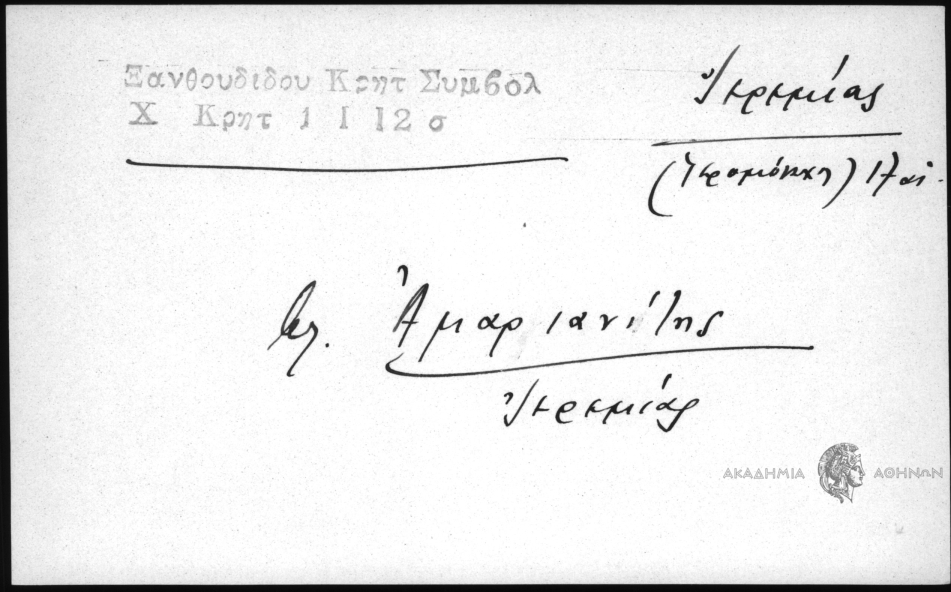 Ξανθουδιδου Κρητ Συμβολ
Χ Κρητ 1 Ι 12 σ
Ἱερεμίας
(Ἱερομόναχος) 17 αἰ.
βλ. Ἀμαριανίτης
Ἱερεμίας
ΑΚΑΔΗΜΙΑ ΑΘΗΝΩΝ